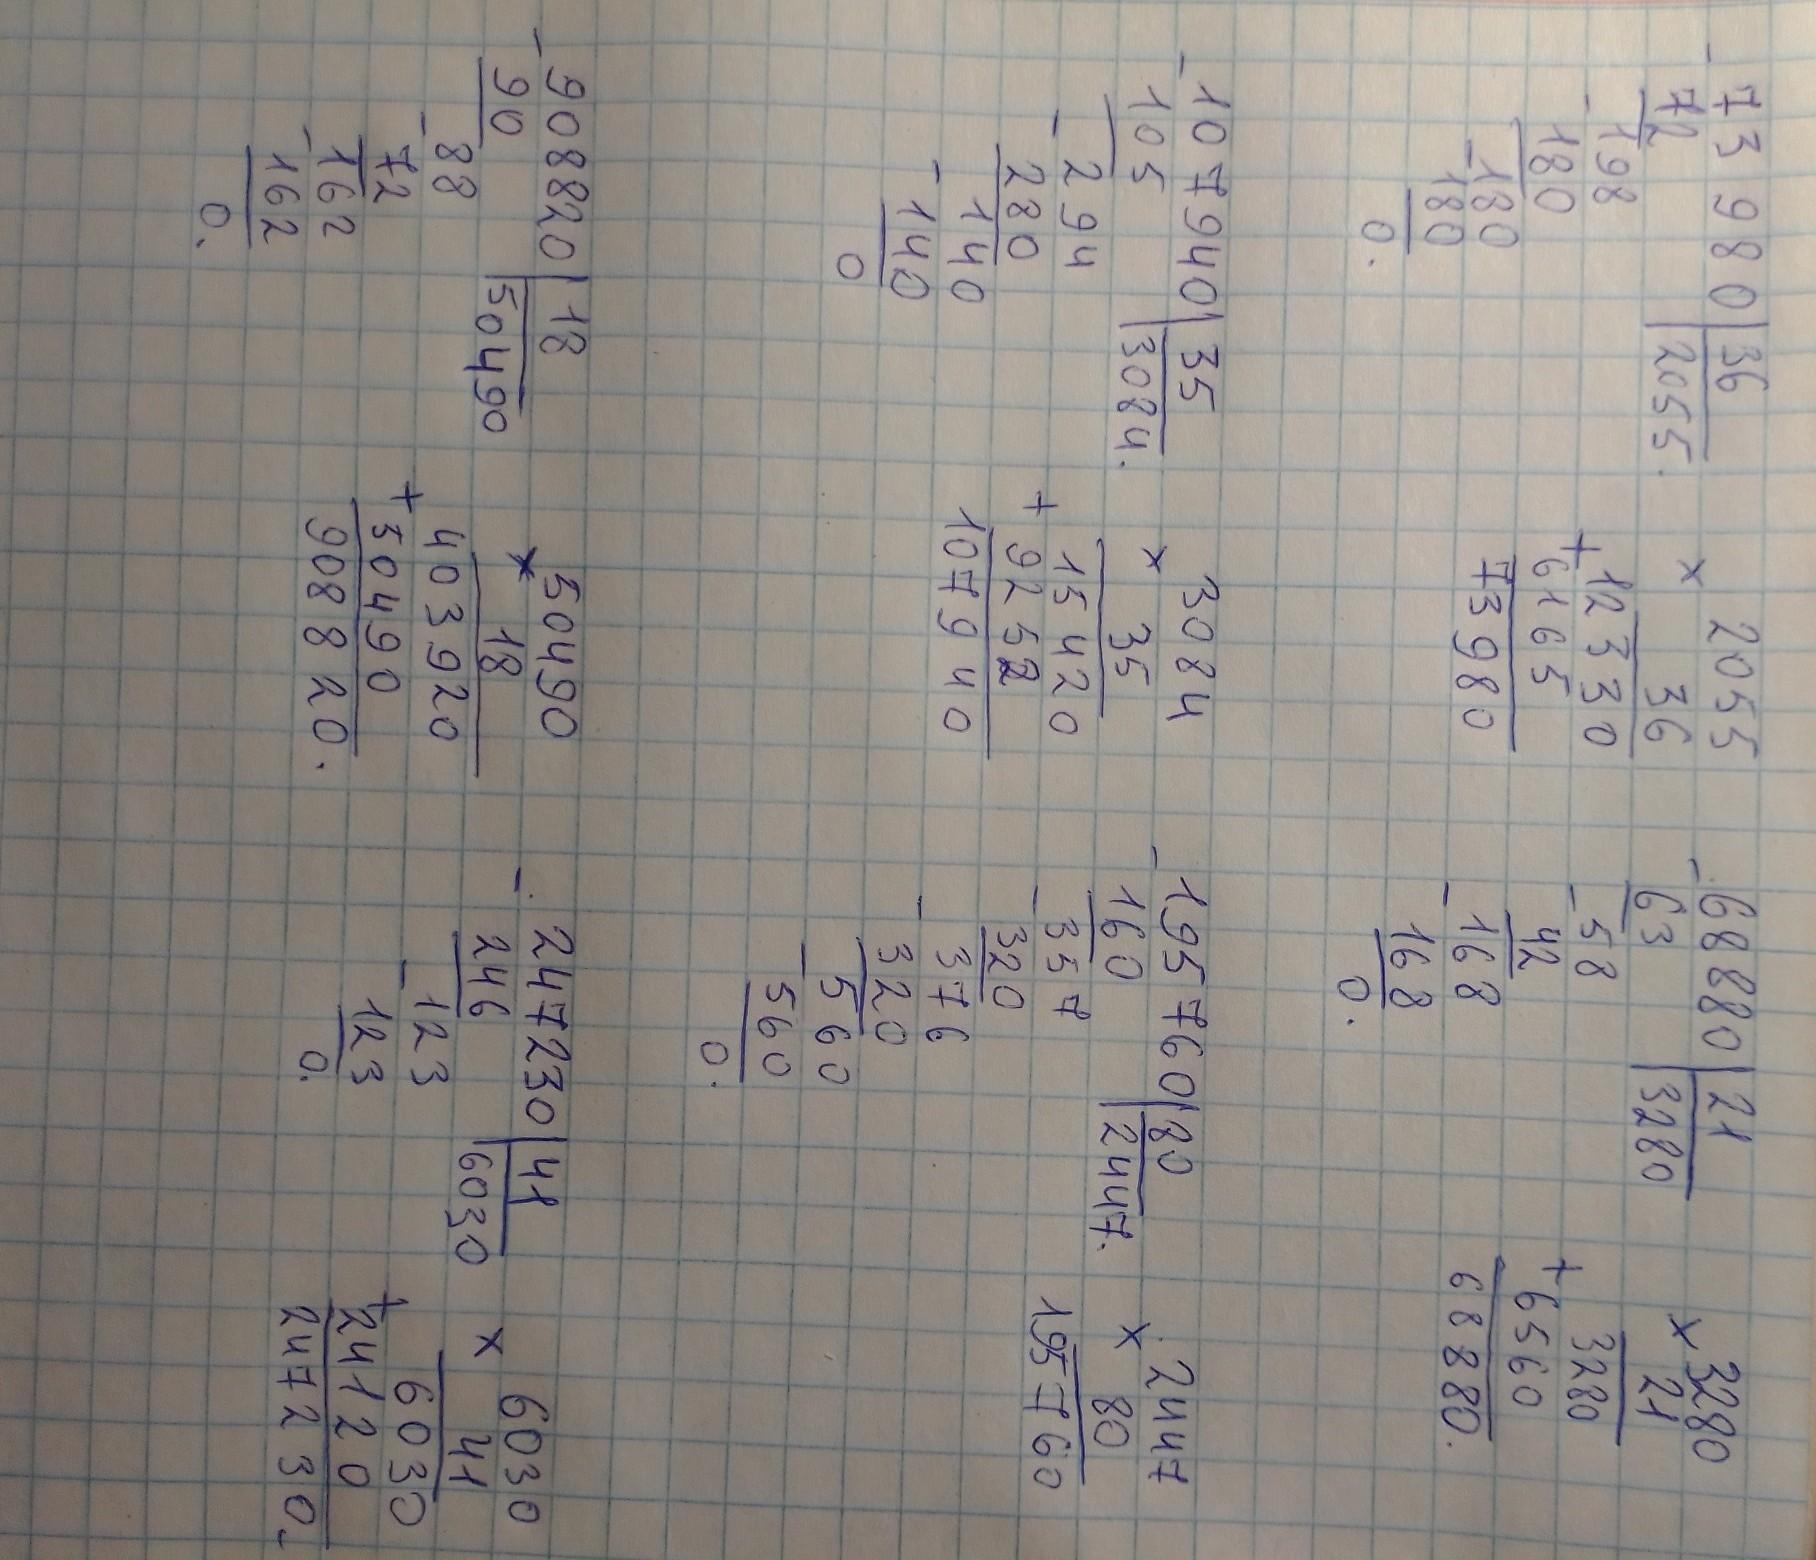 - 73980 | 36
72 | 2055.
- 198
180
- 180
180
0.
× 2055
36
+ 12330
6165
73980
- 68880 | 21
63 | 3280
- 58
42
- 168
168
0.
× 3280
21
+ 3280
6560
68880.
- 107940 | 35
105 | 3084.
- 294
280
- 140
140
0
× 3084
35
+ 15420
9252
107940
- 195760 | 80
160 | 2447.
- 357
320
- 376
320
- 560
560
0.
× 2447
80
195760
- 908820 | 18
90 | 50490
- 88
72
- 162
162
0.
× 50490
18
+ 403920
50490
908820.
- 247230 | 41
246 | 6030
- 123
123
0.
× 6030
41
+ 6030
24120
247230.